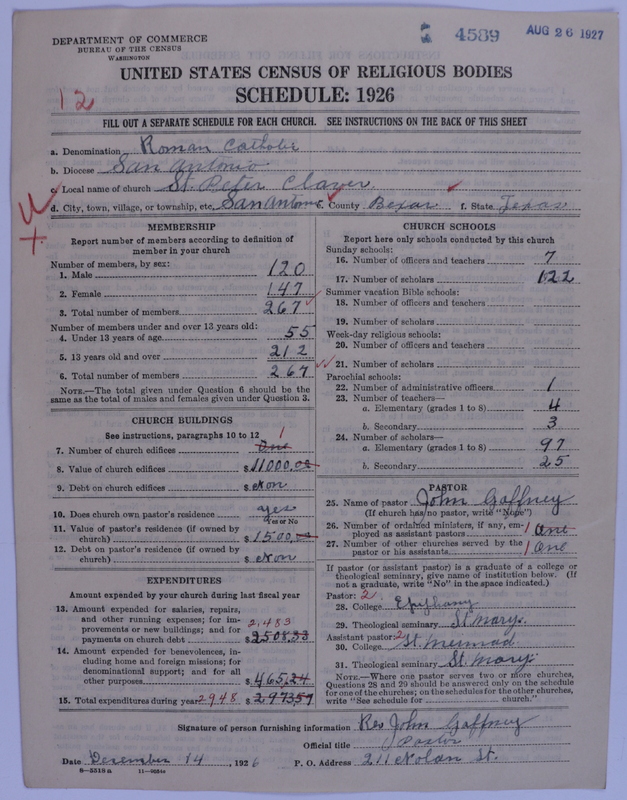 4589 AUG 26 1927
DEPARTMENT OF COMMERCE
BUREAU OF THE CENSUS
WASHINGTON
UNITED STATES CENSUS OF RELIGIOUS BODIES
SCHEDULE: 1926
12
FILL OUT A SEPARATE SCHEDULE FOR EACH CHURCH. SEE INSTRUCTIONS ON THE BACK OF THIS SHEET
a. Denomination Roman Catholic
b. Diocese San Antonio
c. Local name of church St. Peter Claver
d. City, town, village, or township, etc. San Antonio e. County Bexar f. State Texas
MEMBERSHIP
Report number of members according to definition of
member in your church
Number of members, by sex:
1. Male 120
2. Female 147
3. Total number of members 267
Number of members under and over 13 years old:
4. Under 13 years of age 55
5. 13 years old and over 212
6. Total number of members 267
NOTE.—The total given under Question 6 should be the
same as the total of males and females given under Question 3.
CHURCH BUILDINGS
See instructions, paragraphs 10 to 12
7. Number of church edifices One 1
8. Value of church edifices $11000.00
9. Debt on church edifices $Non
10. Does church own pastor's residence yes
Yes or No
11. Value of pastor's residence (if owned by
church) $1500.00
12. Debt on pastor's residence (if owned by
church) $Non
EXPENDITURES
Amount expended by your church during last fiscal year
13. Amount expended for salaries, repairs,
and other running expenses; for im-
provements or new buildings; and for 2,483
payments on church debt $2508.33
14. Amount expended for benevolences, in-
cluding home and foreign missions; for
denominational support; and for all
other purposes $465.24
15. Total expenditures during year 2948 $297357
CHURCH SCHOOLS
Report here only schools conducted by this church
Sunday schools:
16. Number of officers and teachers 7
17. Number of scholars 122
Summer vacation Bible schools:
18. Number of officers and teachers
19. Number of scholars
Week-day religious schools:
20. Number of officers and teachers
21. Number of scholars
Parochial schools:
22. Number of administrative officers 1
23. Number of teachers—
a. Elementary (grades 1 to 8) 4
b. Secondary 3
24. Number of scholars—
a. Elementary (grades 1 to 8) 97
b. Secondary 25
PASTOR
25. Name of pastor John Gaffney
(If church has no pastor, write "None")
26. Number of ordained ministers, if any, em-
ployed as assistant pastors 1 One
27. Number of other churches served by the
pastor or his assistants 1 One
If pastor (or assistant pastor) is a graduate of a college or
theological seminary, give name of institution below. (If
not a graduate, write "No" in the space indicated.)
Pastor: 2
28. College Epiphany
29. Theological seminary St Marys.
Assistant pastor: 2
30. College St. Meinrad
31. Theological seminary St. Marys
NOTE.—Where one pastor serves two or more churches,
Questions 28 and 29 should be answered only on the schedule
for one of the churches; on the schedules for the other churches,
write "See schedule for church."
Signature of person furnishing information Rev John Gaffney
Official title Pastor
Date December 14, 1926 P. O. Address 211 Nolan St.
8—5518 a